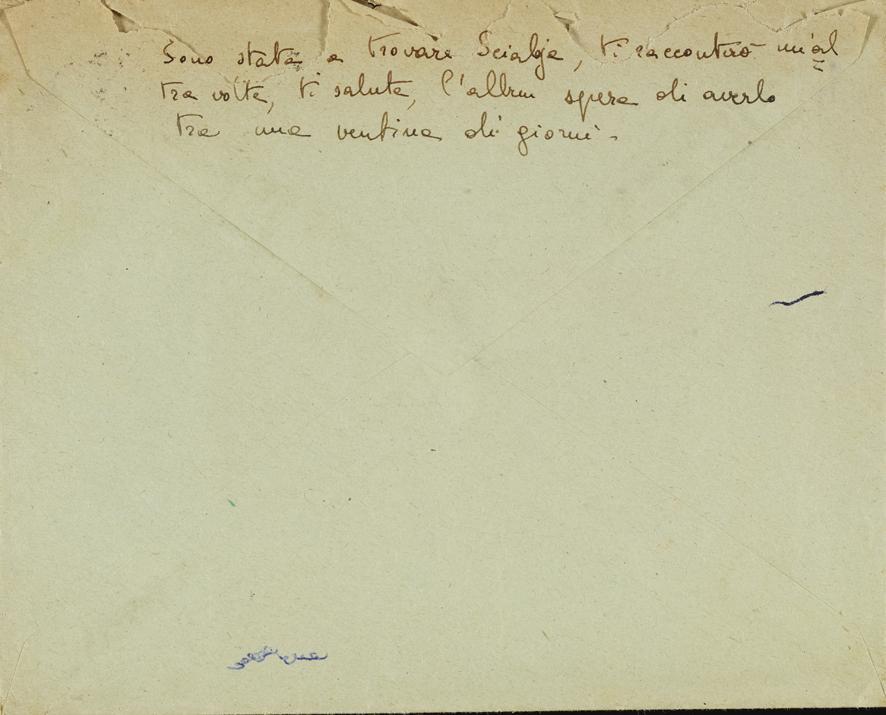 Sono stata a trovare Scialoja, ti racconterò un'al
tra volta, ti saluta, l'album spera di averlo
tra una ventina di giorni.